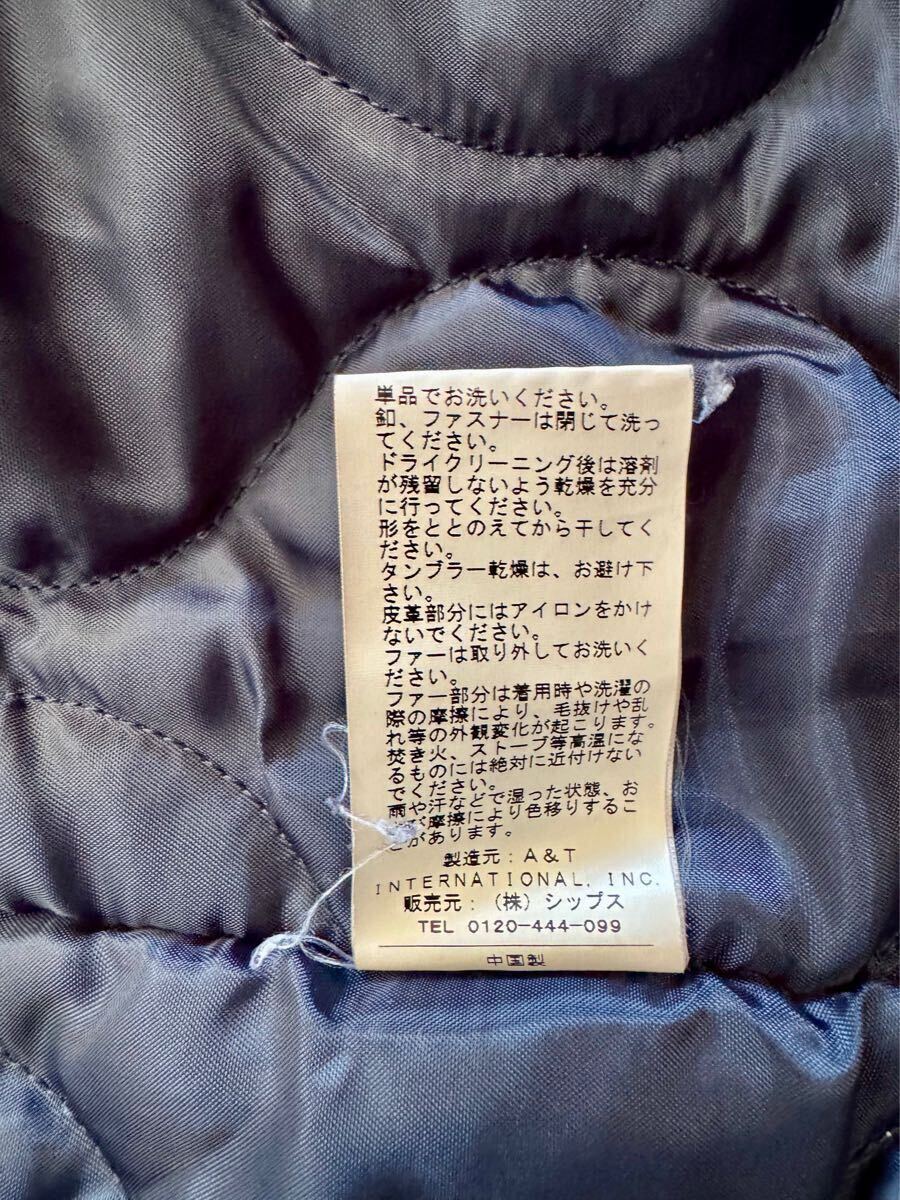 単品でお洗いください。
釦、ファスナーは閉じて洗っ
てください。
ドライクリーニング後は溶剤
が残留しないよう乾燥を充分
に行ってください。
形をととのえてから干してく
ださい。
タンブラー乾燥は、お避け下
さい。
皮革部分にはアイロンをかけ
ないでください。
ファーは取り外してお洗いく
ださい。
ファー部分は着用時や洗濯の
際の摩擦により、毛抜けや乱
れ等の外観変化が起こります。
焚き火、ストーブ等高温にな
るものには絶対に近付けない
でください。
雨や汗などで湿った状態、お
よび摩擦により色移りするこ
とがあります。
製造元:A&T
INTERNATIONAL, INC.
販売元:(株)シップス
TEL 0120-444-099
中国製